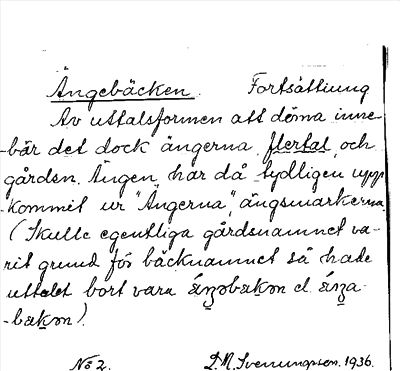 Ängebäcken. Fortsättiung
Av uttalsformen att döma inne-
-bär det dock ängerna, flertal, och
gårdsn. Ängen, har då tydligen upp-
-kommit ur "Ängerna", ängsmarkerna.
(Skulle egentliga gårdsnamnet va-
rit grund för bäcknamnet så hade
uttalet bort vara
-bakən).
No 2. D.M. Svenungsson. 1936.